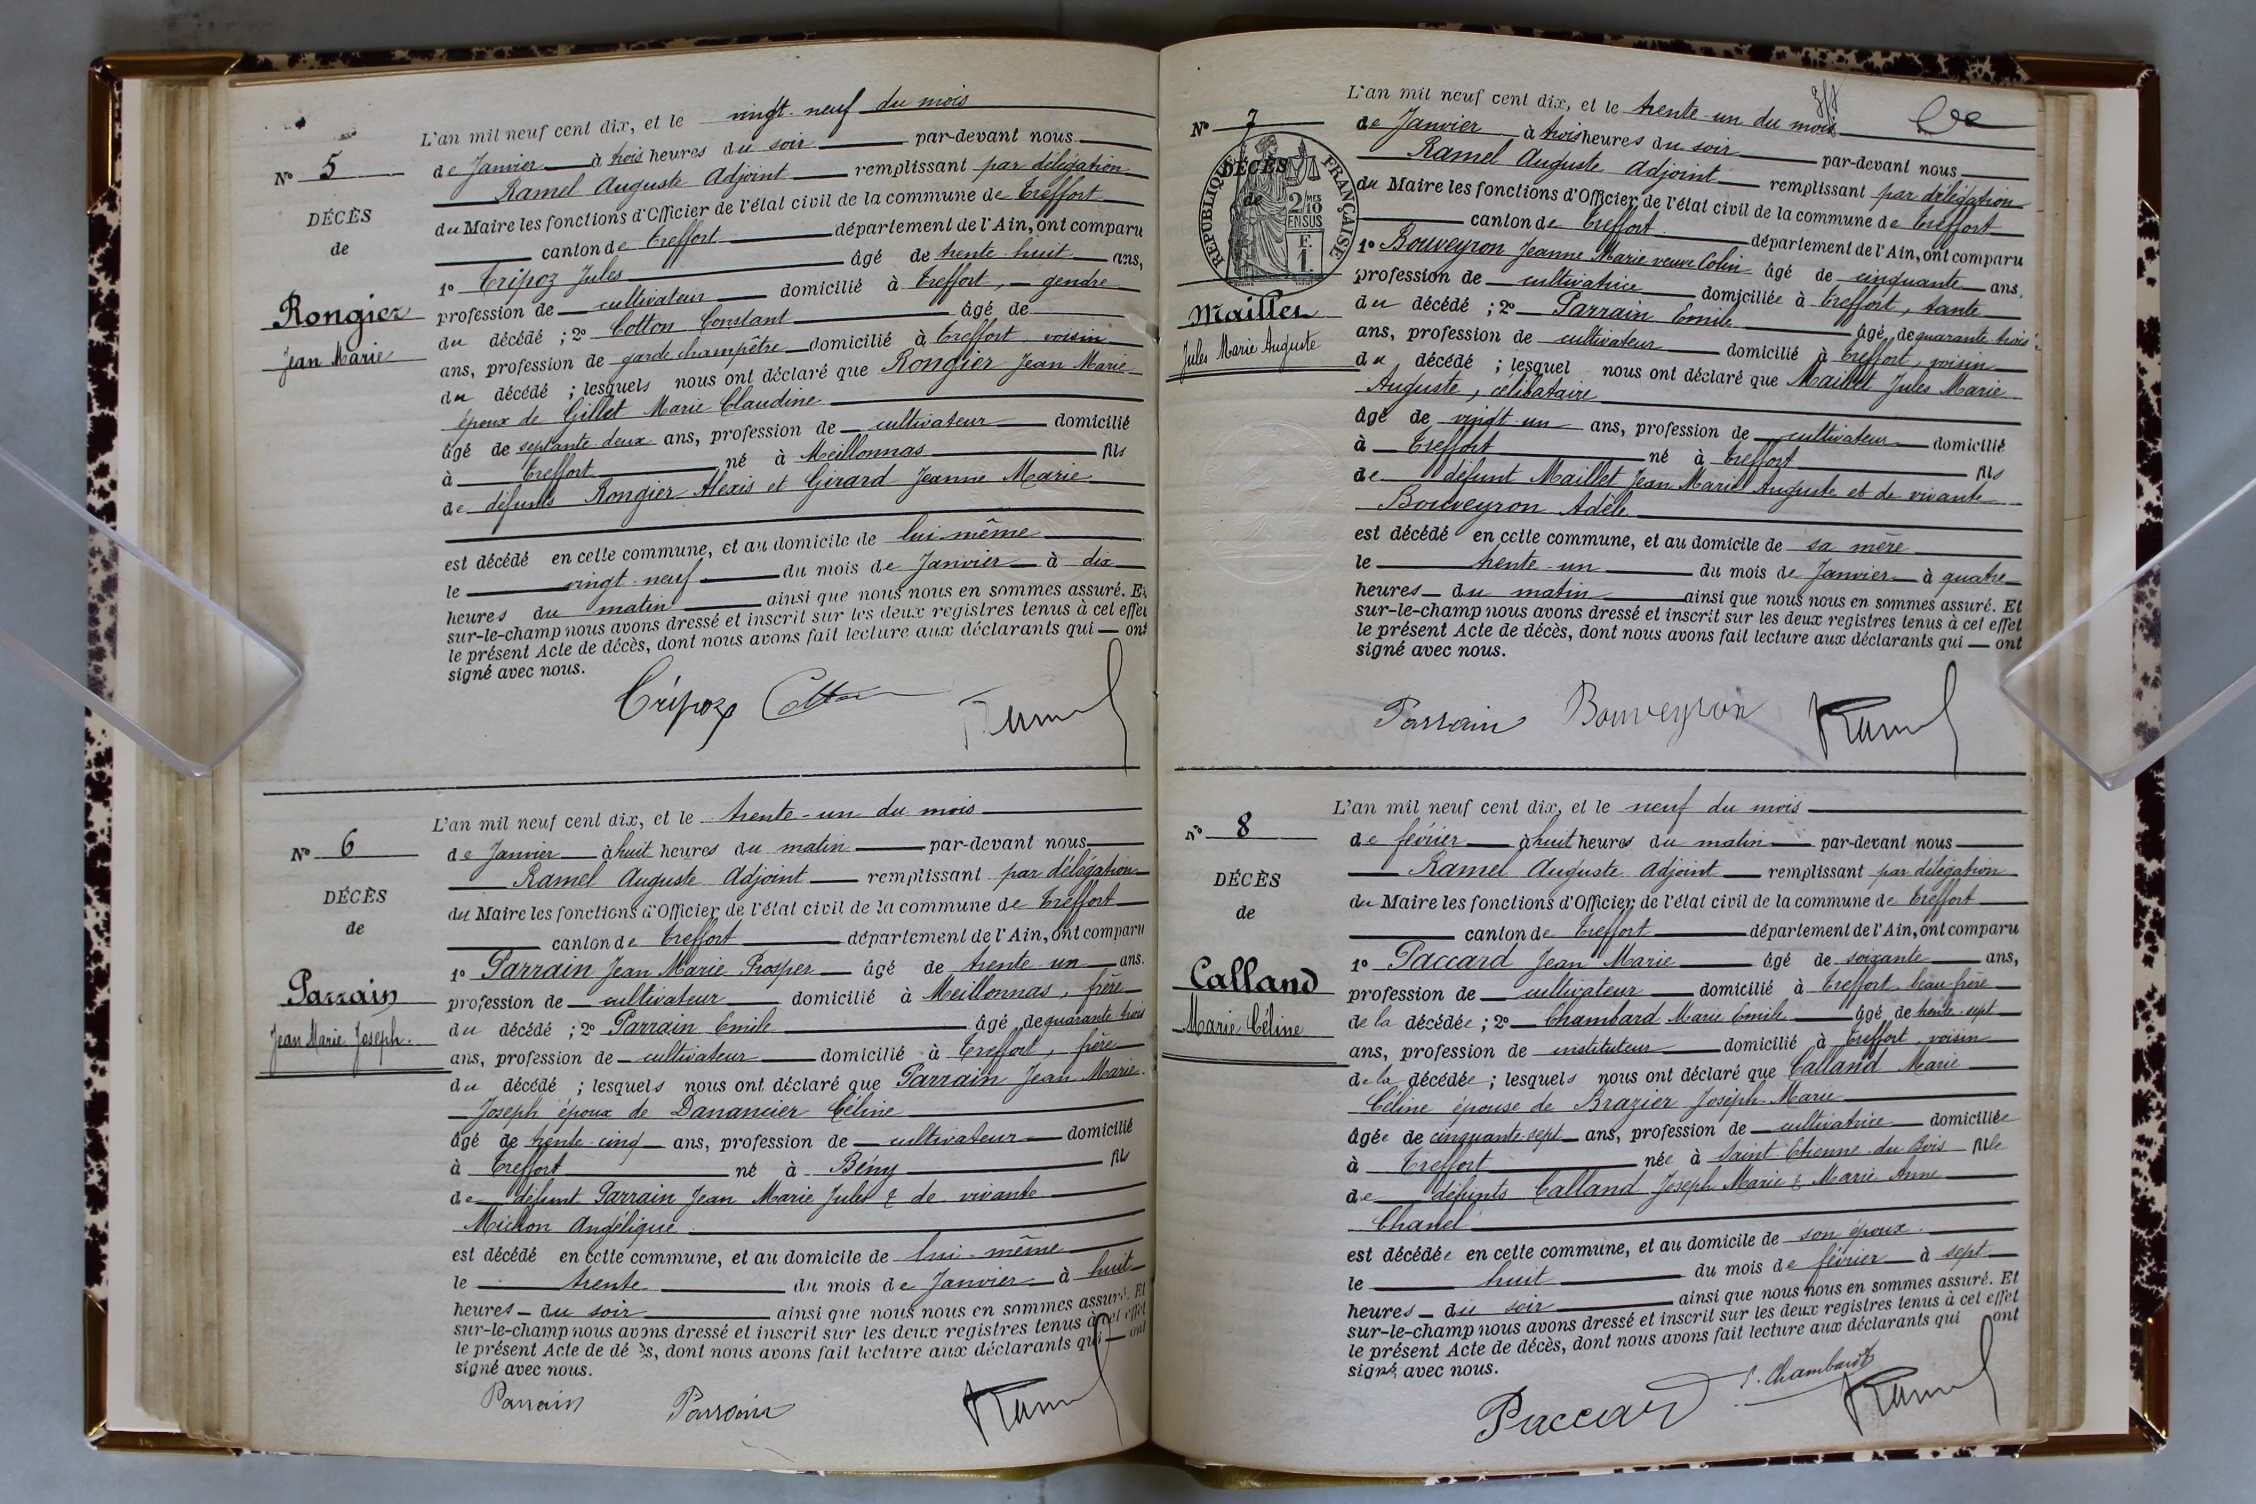 L'an mil neuf cent dix, et le vingt-neuf du mois
N° 5
DÉCÈS
de
Rongier
Jean Marie
de Janvier à trois heures du soir par-devant nous
Ramel Auguste Adjoint remplissant par délégation
du Maire les fonctions d'Officier de l'état civil de la commune de Treffort
canton de Treffort département de l'Ain, ont comparu
1° Tripoz Jules âgé de trente huit ans,
profession de cultivateur domicilié à Treffort, gendre
du décédé ; 2° Cotton Constant âgé de
ans, profession de garde champêtre domicilié à Treffort, voisin
du décédé ; lesquels nous ont déclaré que Rongier Jean Marie
époux de Gillet Marie Claudine
âgé de septante deux ans, profession de cultivateur domicilié
à Treffort né à Meillonnas fils
de défunts Rongier Alexis et Girard Jeanne Marie
est décédé en cette commune, et au domicile de lui-même
le vingt-neuf du mois de Janvier à dix
heures du matin ainsi que nous nous en sommes assuré. Et
sur-le-champ nous avons dressé et inscrit sur les deux registres tenus à cet effet
le présent Acte de décès, dont nous avons fait lecture aux déclarants qui ont
signé avec nous.
Tripoz Cotton Ramel
L'an mil neuf cent dix, et le trente-un du mois
N° 6
DÉCÈS
de
Parrain
Jean Marie Joseph.
de Janvier à huit heures du matin par-devant nous
Ramel Auguste Adjoint remplissant par délégation
du Maire les fonctions d'Officier de l'état civil de la commune de Treffort
canton de Treffort département de l'Ain, ont comparu
1° Parrain Jean Marie Prosper âgé de trente-un ans.
profession de cultivateur domicilié à Meillonnas, frère
du décédé ; 2° Parrain Emile âgé de quarante trois
ans, profession de cultivateur domicilié à Treffort, frère
du décédé ; lesquels nous ont déclaré que Parrain Jean Marie
Joseph époux de Danancier Céline
âgé de trente-cinq ans, profession de cultivateur domicilié
à Treffort né à Bény fils
de défunt Parrain Jean Marie Jules & de vivante
Michon Angélique
est décédé en cette commune, et au domicile de lui-même
le trente du mois de Janvier à huit
heures du soir ainsi que nous nous en sommes assuré. Et
sur-le-champ nous avons dressé et inscrit sur les deux registres tenus à cet effet
le présent Acte de décès, dont nous avons fait lecture aux déclarants qui ont
signé avec nous.
Parrain Parrain Ramel
L'an mil neuf cent dix, et le trente-un du mois
N° 7
DÉCÈS
de
RÉPUBLIQUE FRANÇAISE
2/10 MES
EN SUS
F.
1.
Maillet
Jules Marie Auguste
de Janvier à trois heures du soir par-devant nous
Ramel Auguste Adjoint remplissant par délégation
du Maire les fonctions d'Officier de l'état civil de la commune de Treffort
canton de Treffort département de l'Ain, ont comparu
1° Bouveyron Jeanne Marie veuve Colin âgé de cinquante ans.
profession de cultivatrice domiciliée à Treffort, tante
du décédé ; 2° Parrain Emile âgé de quarante-trois
ans, profession de cultivateur domicilié à Treffort, voisin
du décédé ; lesquel nous ont déclaré que Maillet Jules Marie
Auguste, célibataire
âgé de vingt-un ans, profession de cultivateur domicilié
à Treffort né à Treffort fils
de défunt Maillet Jean Marie Auguste et de vivante
Bouveyron Adèle
est décédé en cette commune, et au domicile de sa mère
le trente-un du mois de Janvier à quatre
heures du matin ainsi que nous nous en sommes assuré. Et
sur-le-champ nous avons dressé et inscrit sur les deux registres tenus à cet effet
le présent Acte de décès, dont nous avons fait lecture aux déclarants qui ont
signé avec nous.
Parrain Bouveyron Ramel
L'an mil neuf cent dix, et le neuf du mois
N° 8
DÉCÈS
de
Calland
Marie Céline
de février à huit heures du matin par-devant nous
Ramel Auguste Adjoint remplissant par délégation
du Maire les fonctions d'Officier de l'état civil de la commune de Treffort
canton de Treffort département de l'Ain, ont comparu
1° Paccard Jean Marie âgé de soixante ans,
profession de cultivateur domicilié à Treffort, beau frère
de la décédée ; 2° Chambard Marie Emile âgé de trente-sept
ans, profession de instituteur domicilié à Treffort, voisin
de la décédée ; lesquels nous ont déclaré que Calland Marie
Céline épouse de Brazier Joseph Marie
âgée de cinquante-sept ans, profession de cultivatrice domiciliée
à Treffort née à Saint Etienne du Bois fille
de défunts Calland Joseph Marie & Marie Anne
Chanel
est décédée en cette commune, et au domicile de son époux.
le huit du mois de février à sept
heures du soir ainsi que nous nous en sommes assuré. Et
sur-le-champ nous avons dressé et inscrit sur les deux registres tenus à cet effet
le présent Acte de décès, dont nous avons fait lecture aux déclarants qui ont
signé avec nous.
Paccard Chambard Ramel